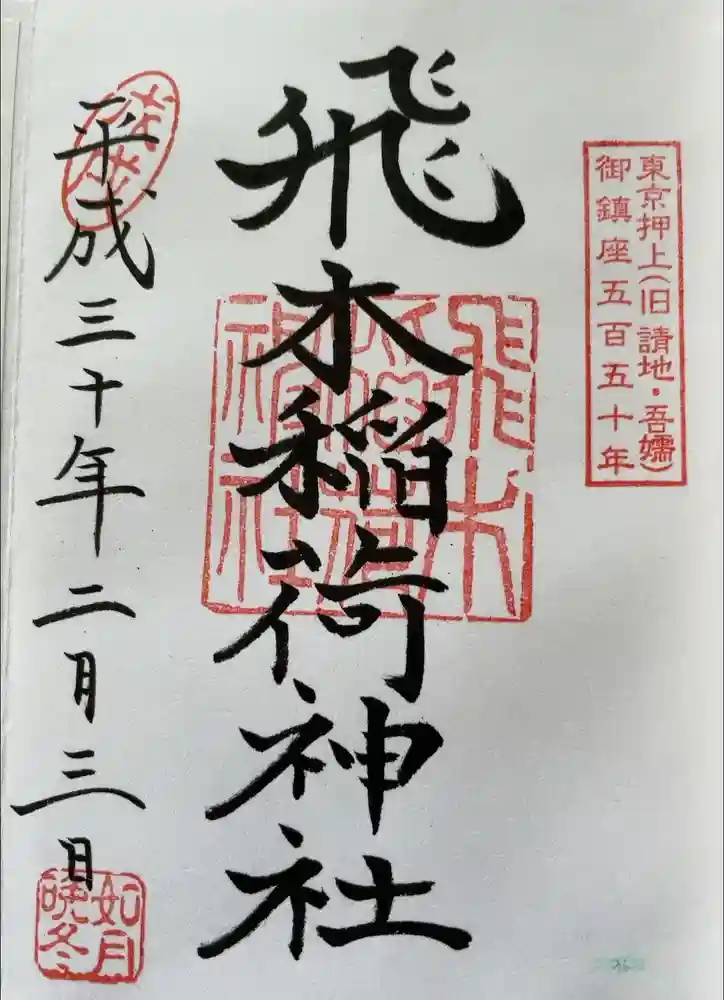 東京押上(旧請地・吾嬬)
御鎮座五百五十年
飛木稲荷神社
飛木
稲荷
神社
平成三十年二月三日
如月
晩冬